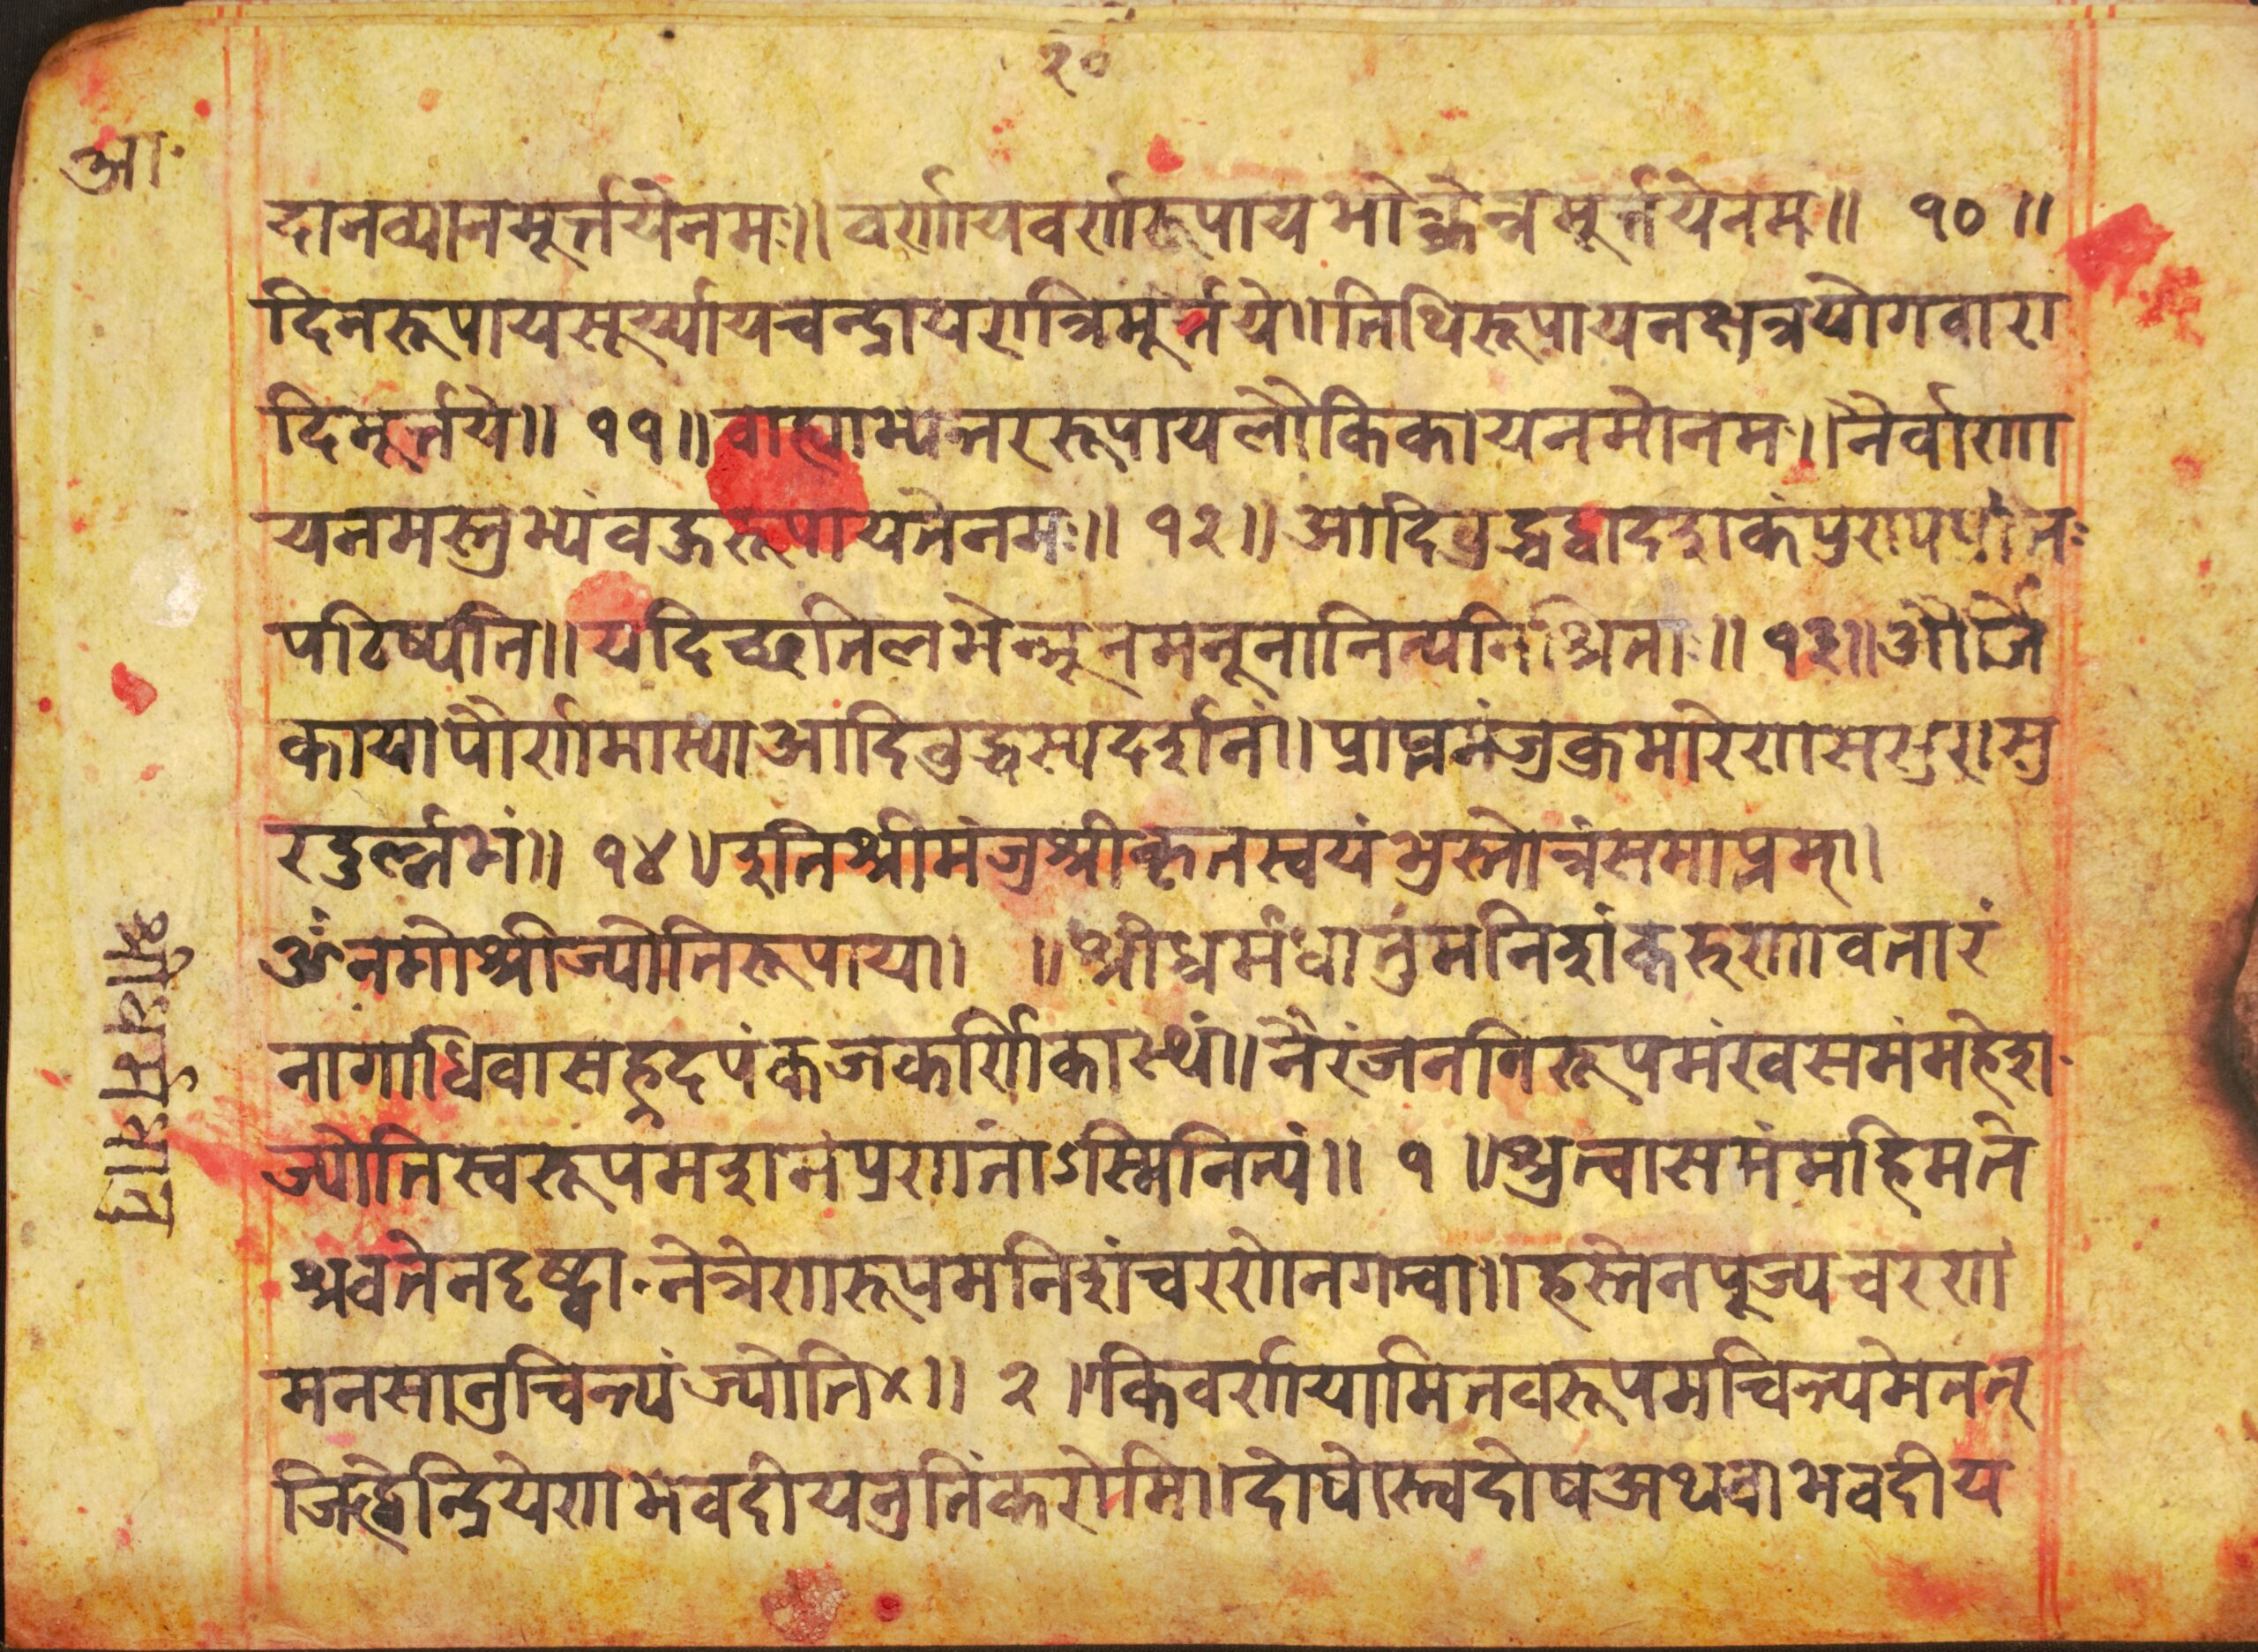 २०
आ.
दानव्यानमूर्त्तयेनमः॥वर्णायवर्णरूपायभोक्त्रेन्नमूर्त्तयेनम॥ १० ॥
दिनरूपायसूर्य्यायचन्द्रायरात्रिमूर्त्तये॥तिथिरूपायनक्षत्रयोगवारा
दिमूर्त्तये॥ ११॥वाह्याभ्यन्तररूपायलौकिकायनमोनमः॥नैर्वाणा
यनमस्तुभ्यंवहुरूपायतेनमः॥ १२॥आदिवुद्धद्वादशकंपुण्यं
पठिष्यति॥यदिच्छतिलभेन्नूनमनूनानित्यनिश्चितः॥ १३॥और्जि
कायांपौर्णमास्यांआदिवुद्धस्यदर्शनं॥प्राप्तमंजुकुमारेणससुरासु
रदुर्ल्लभं॥ १४॥इतिश्रीमंजुश्रीकृतस्वयंभुस्तोत्रंसमाप्तम्।
ॐनमोश्रीज्योतिरूपाय॥ ॥श्रीधर्मधातुंमनिशंकरुणावतारं
नागाधिवासहृदपंकजकर्णिकास्थं॥नैरंजननिरूपमंखसमंमहेशं
ज्योतिस्वरूपमशनंप्रणतोऽस्मिनित्यं॥ १ ॥श्रुत्वासमंमहिमते
श्रवतेनदृष्ट्वा-नेत्रेणरूपमनिशंचरणेनगत्वा॥हस्तेनपूज्यचरणं
मनसानुचिन्त्यंज्योति४॥ २ ॥किंवर्णयामितवरूपमचिन्त्यमेतत्
जिह्वेन्द्रियेणभवदीयनुतिंकरोमि॥दोषोस्त्वदोषअथवाभवदीय
श्रीधर्मधातु